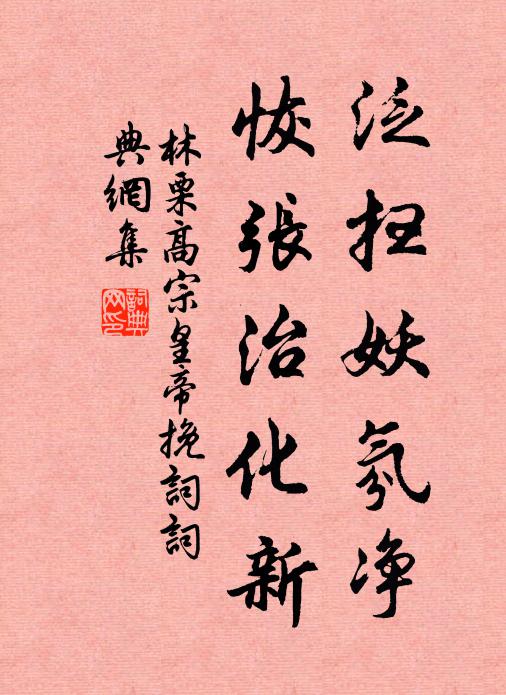 泛扫妖氛净
恢張治化新
林栗高宗皇帝挽詞詞
典網集
詞典网印